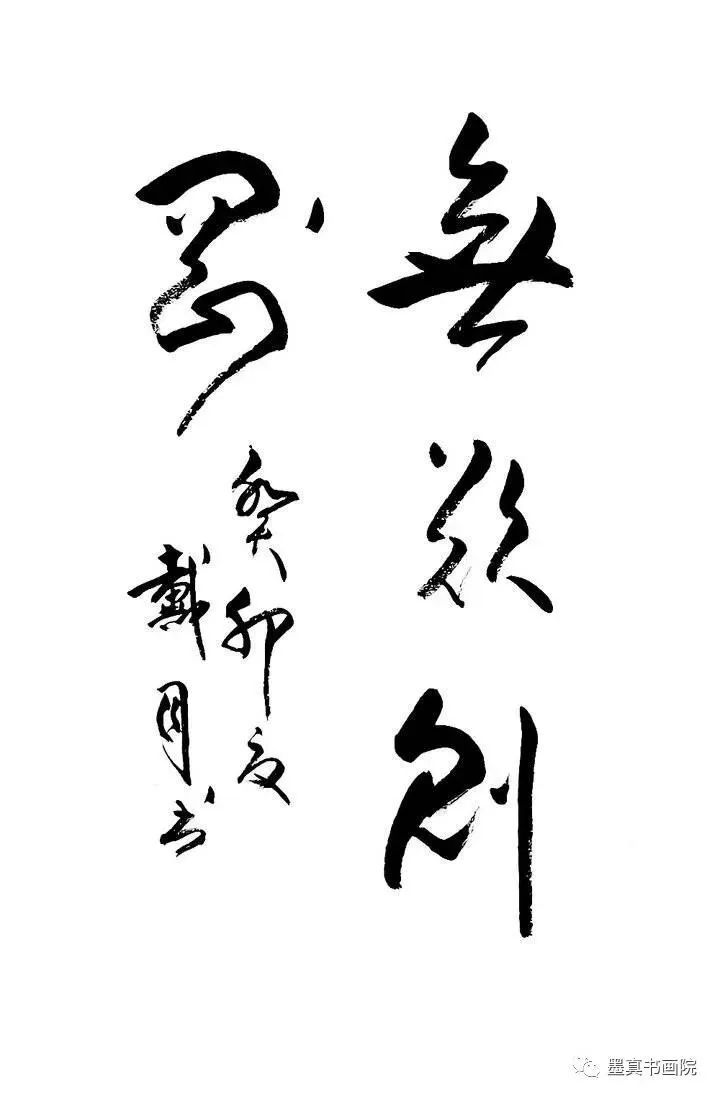 無欲則
剛
癸卯夏
戴月书
墨真书画院